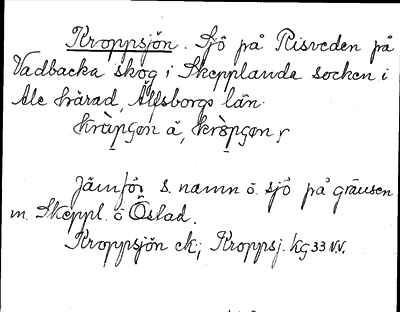 Kroppsjön. Sjö på Risveden på
Vadbacka skog i Skepplanda socken i
Ale härad, Älfsborgs län.
kràpʂon å, kròpʂon
Jämför s. namn å sjö på gränsen
m. Skeppl. o Östad.
Kroppsjön ek; Kroppsj. kg 33 NV.